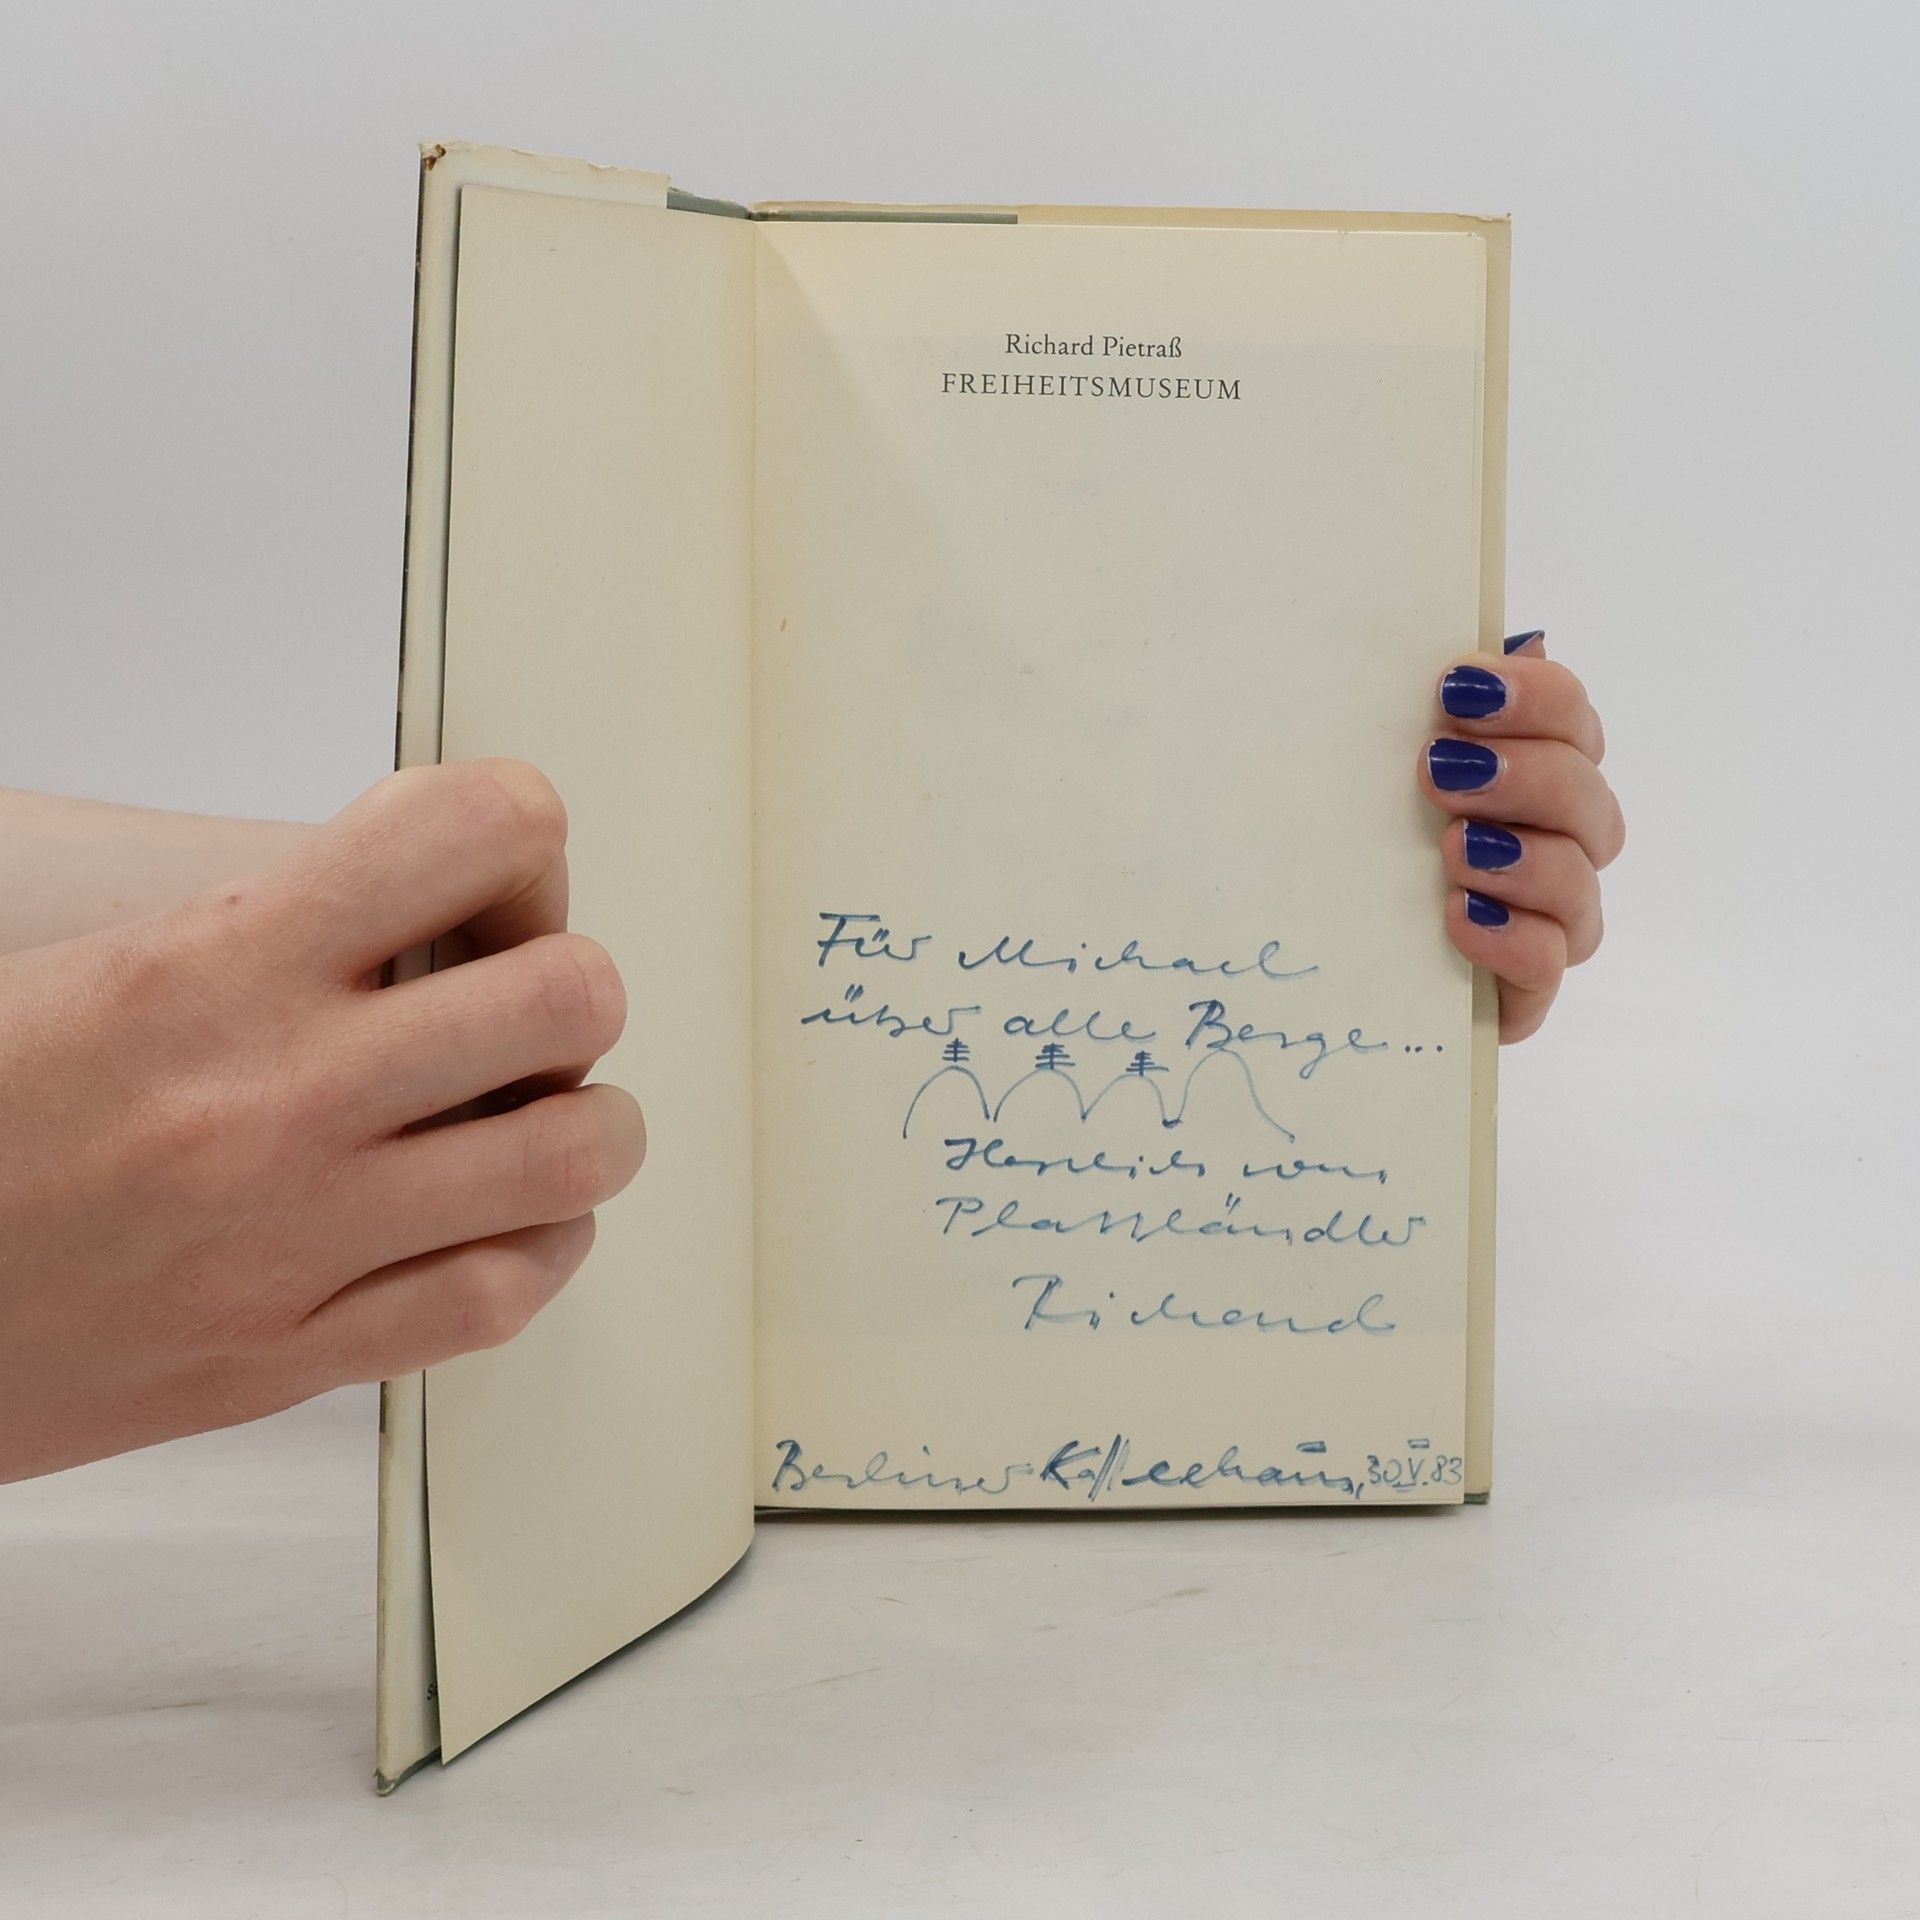 Richard Pietraß
FREIHEITSMUSEUM
Für Michael
über alle Berge...
Herzlich vom
Plattländler
Richard
Berliner Kaffeehaus, 30.V.83